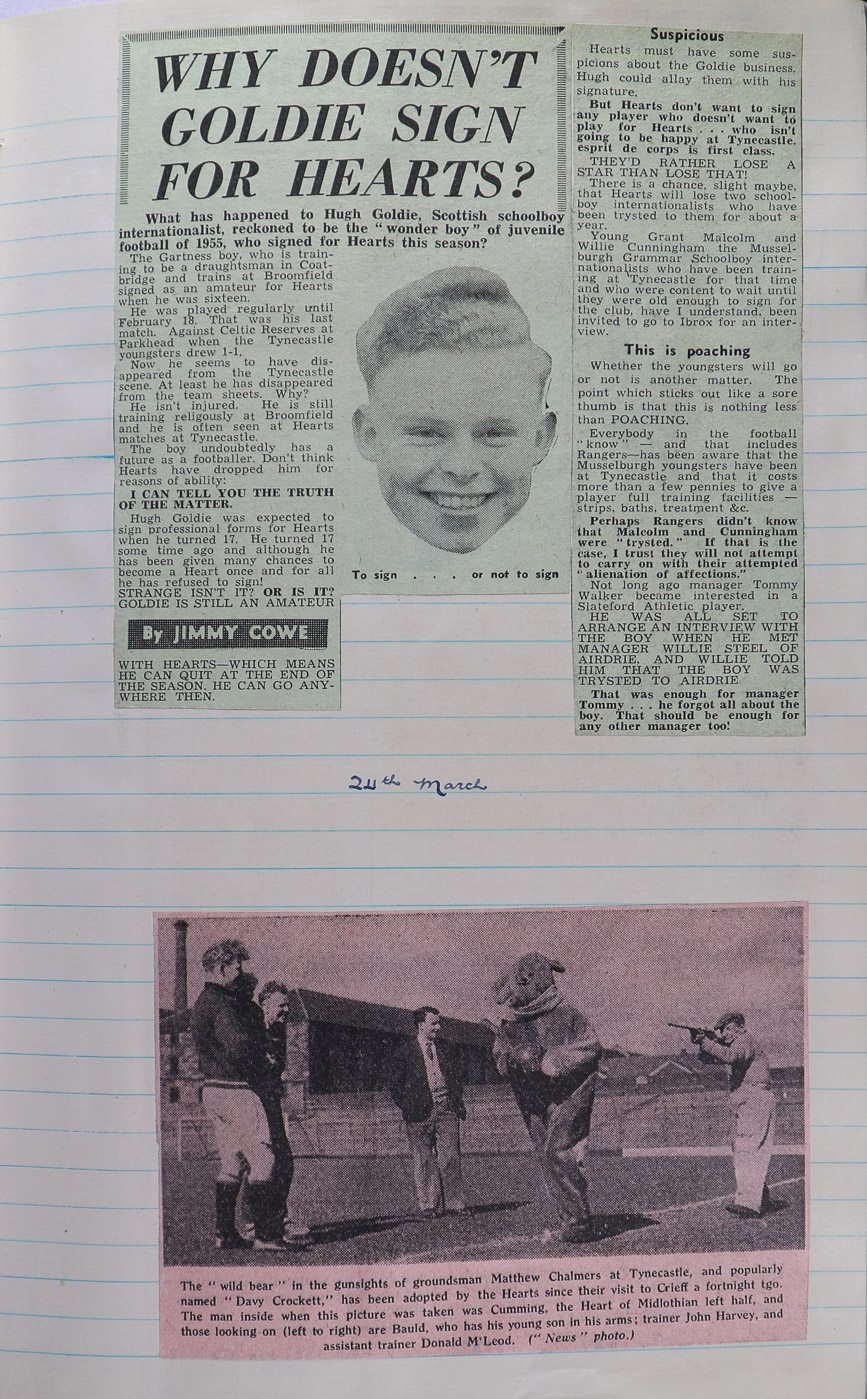 WHY DOESN'T
GOLDIE SIGN
FOR HEARTS?
What has happened to Hugh Goldie, Scottish schoolboy
internationalist, reckoned to be the "wonder boy" of juvenile
football of 1955, who signed for Hearts this season?
The Gartness boy, who is train-
ing to be a draughtsman in Coat-
bridge and trains at Broomfield
signed as an amateur for Hearts
when he was sixteen.
He was played regularly until
February 18. That was his last
match. Against Celtic Reserves at
Parkhead when the Tynecastle
youngsters drew 1-1,
Now he seems to have dis-
appeared from the Tynecastle
scene. At least he has disappeared
from the team sheets. Why?
He isn't injured. He is still
training religously at Broomfield
and he is often seen at Hearts
matches at Tynecastle.
The boy undoubtedly has a
future as a footballer. Don't think
Hearts have dropped him for
reasons of ability:
I CAN TELL YOU THE TRUTH
OF THE MATTER.
Hugh Goldie was expected to
sign professional forms for Hearts
when he turned 17. He turned 17
some time ago and although he
has been given many chances to
become a Heart once and for all
he has refused to sign!
STRANGE ISN'T IT? OR IS IT?
GOLDIE IS STILL AN AMATEUR
By JIMMY COWE
WITH HEARTS—WHICH MEANS
HE CAN QUIT AT THE END OF
THE SEASON. HE CAN GO ANY-
WHERE THEN.
To sign . . . or not to sign
Suspicious
Hearts must have some sus-
picions about the Goldie business.
Hugh could allay them with his
signature.
But Hearts don't want to sign
any player who doesn't want to
play for Hearts . . . who isn't
going to be happy at Tynecastle.
esprit de corps is first class.
THEY'D RATHER LOSE A
STAR THAN LOSE THAT!
There is a chance, slight maybe,
that Hearts will lose two school-
boy internationalists who have
been trysted to them for about a
year.
Young Grant Malcolm and
Willie Cunningham the Mussel-
burgh Grammar Schoolboy inter-
nationalists who have been train-
ing at Tynecastle for that time
and who were content to wait until
they were old enough to sign for
the club, have I understand, been
invited to go to Ibrox for an inter-
view.
This is poaching
Whether the youngsters will go
or not is another matter. The
point which sticks out like a sore
thumb is that this is nothing less
than POACHING.
Everybody in the football
"know" — and that includes
Rangers—has been aware that the
Musselburgh youngsters have been
at Tynecastle and that it costs
more than a few pennies to give a
player full training facilities —
strips, baths, treatment &c.
Perhaps Rangers didn't know
that Malcolm and Cunningham
were "trysted." If that is the
case, I trust they will not attempt
to carry on with their attempted
"alienation of affections."
Not long ago manager Tommy
Walker became interested in a
Slateford Athletic player.
HE WAS ALL SET TO
ARRANGE AN INTERVIEW WITH
THE BOY WHEN HE MET
MANAGER WILLIE STEEL OF
AIRDRIE, AND WILLIE TOLD
HIM THAT THE BOY WAS
TRYSTED TO AIRDRIE
That was enough for manager
Tommy . . . he forgot all about the
boy. That should be enough for
any other manager too!
24th March
The "wild bear" in the gunsights of groundsman Matthew Chalmers at Tynecastle, and popularly
named "Davy Crockett," has been adopted by the Hearts since their visit to Crieff a fortnight tgo.
The man inside when this picture was taken was Cumming, the Heart of Midlothian left half, and
those looking on (left to right) are Bauld, who has his young son in his arms; trainer John Harvey, and
assistant trainer Donald M'Leod. ("News" photo.)